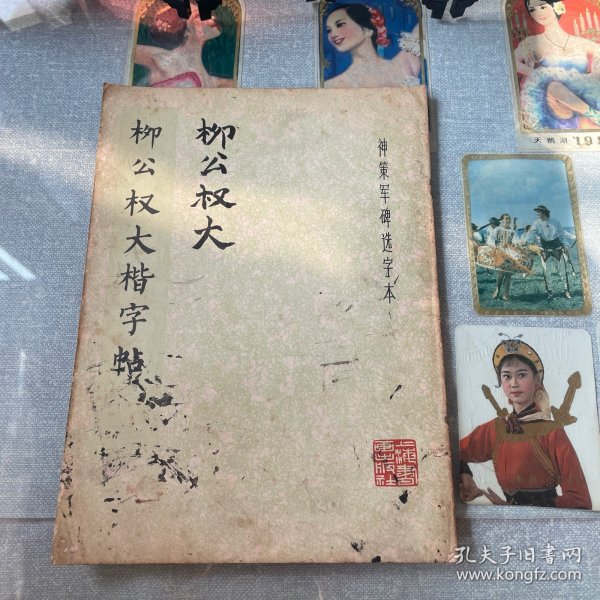 神策军碑选字本
柳公权大
柳公权大楷字帖
上海书画出版社
天鹅湖 198
孔夫子旧书网
www.kongfz.com